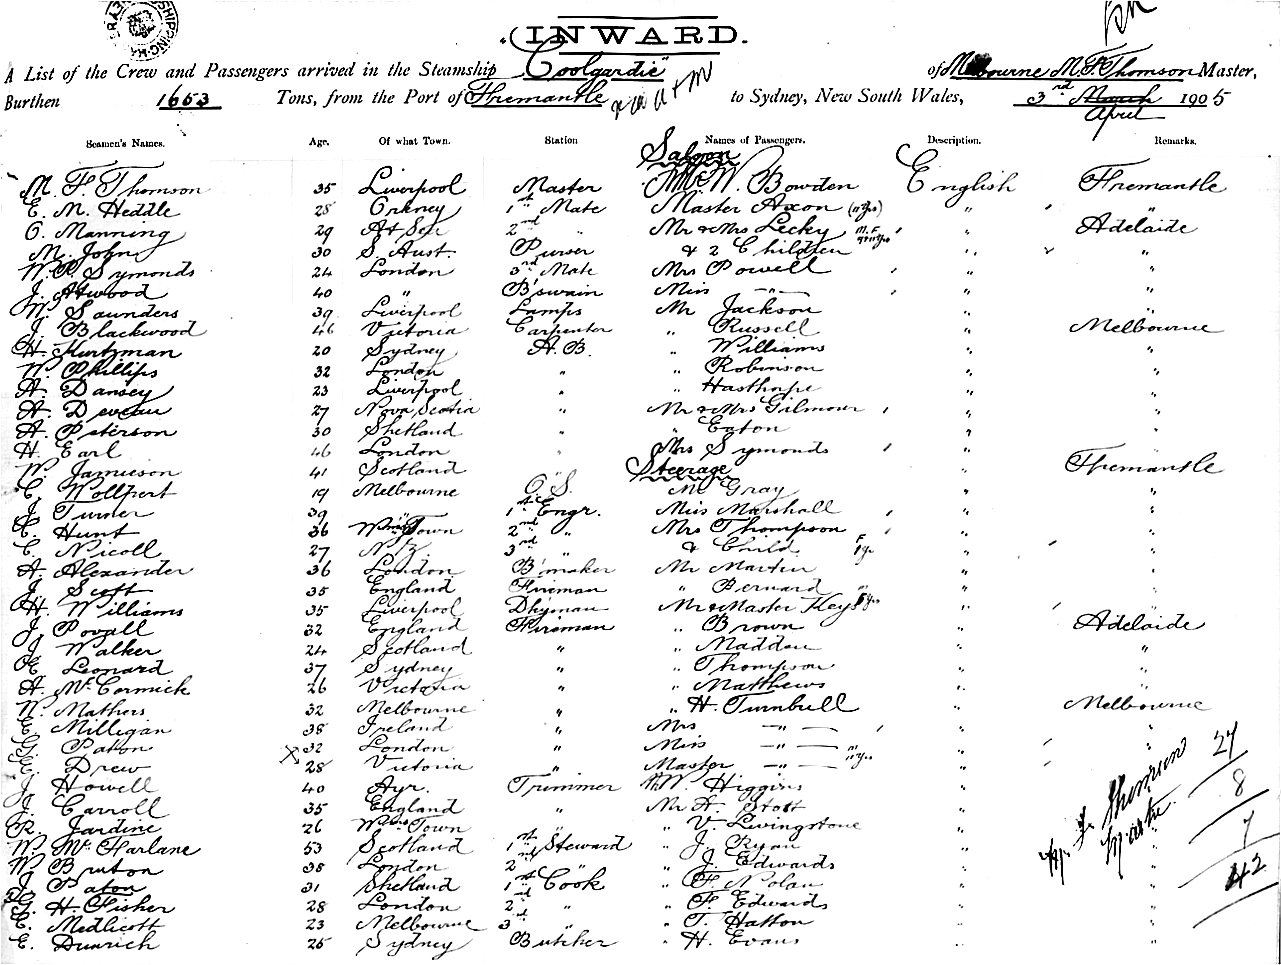 INWARD.
A List of the Crew and Passengers arrived in the Steamship "Coolgardie" of Melbourne M. F. Thomson Master,
Burthen 1653 Tons, from the Port of Fremantle to Sydney, New South Wales, 3rd March April 1905
Seamen's Names. Age. Of what Town. Station Names of Passengers. Description. Remarks.
Saloon
M. F. Thomson 35 Liverpool Master Mr W. Bowden English Fremantle
E. M. Heddle 28 Orkney 1st Mate Master Axon (11 yrs) " "
O. Manning 29 At Sea 2nd " Mr & Mrs Lecky " Adelaide
M. John 30 S. Aust. Purser & 2 Children " "
W. P. Symonds 24 London 3rd Mate Mrs Powell " "
J. Atwood 40 " B'swain Miss —"— " "
W. Saunders 39 Liverpool Lamps Mr Jackson " "
J. Blackwood 46 Victoria Carpenter " Russell " Melbourne
H. Kurtzman 20 Sydney A.B. " Williams " "
W. Phillips 32 London " " Robinson " "
A. Dansey 23 Liverpool " " Hasthorpe " "
A. Deveau 27 Nova Scotia " Mr & Mrs Gilmour " "
A. Peterson 30 Shetland " " Eaton " "
H. Earl 46 London " Mrs Symonds " "
Steerage
W. Jamieson 41 Scotland " Fremantle
C. Wollpert 19 Melbourne O.S. Mr Gray " "
J. Turner 39 " 1st Engr. Miss Marshall " "
C. Hunt 36 Wms Town 2nd " Mrs Thompson " "
C. Nicoll 27 N.Z. 3rd " & Child F 1 yr " "
A. Alexander 36 London B'maker Mr Martin " "
J. Scott 35 England Fireman " Bernard " "
H. Williams 35 Liverpool Dkyman Mr & Master Keys " "
J. Povall 32 England Fireman " Brown " Adelaide
J. Walker 24 Scotland " " Madden " "
E. Leonard 37 Sydney " " Thompson " "
A. McCormick 26 Victoria " " Matthews " "
W. Mathers 32 Melbourne " " H. Turnbull " Melbourne
E. Milligan 38 Ireland " Mrs —"— " "
G. Paton X 32 London " Miss —"— " "
E. Drew 28 Victoria " Master —"— " "
J. Howell 40 Ayr. Trimmer Mr W. Higgins " "
J. Carroll 35 England " Mr A. Stott " "
R. Jardine 26 Wms Town " " V. Livingstone " "
W. McFarlane 53 Scotland 1st Steward " J. Ryan " "
W. Bruton 38 London 2nd " " J. Edwards " "
J. Paton 31 Shetland 1st Cook " F. Nolan " "
G. H. Fisher 28 London 2nd " " F. Edwards " "
E. Medlicott 23 Melbourne 3rd " " T. Hatton " "
E. Dunrich 25 Sydney Butcher " H. Evans " "
M. F. Thomson
Master
27
8
7
42